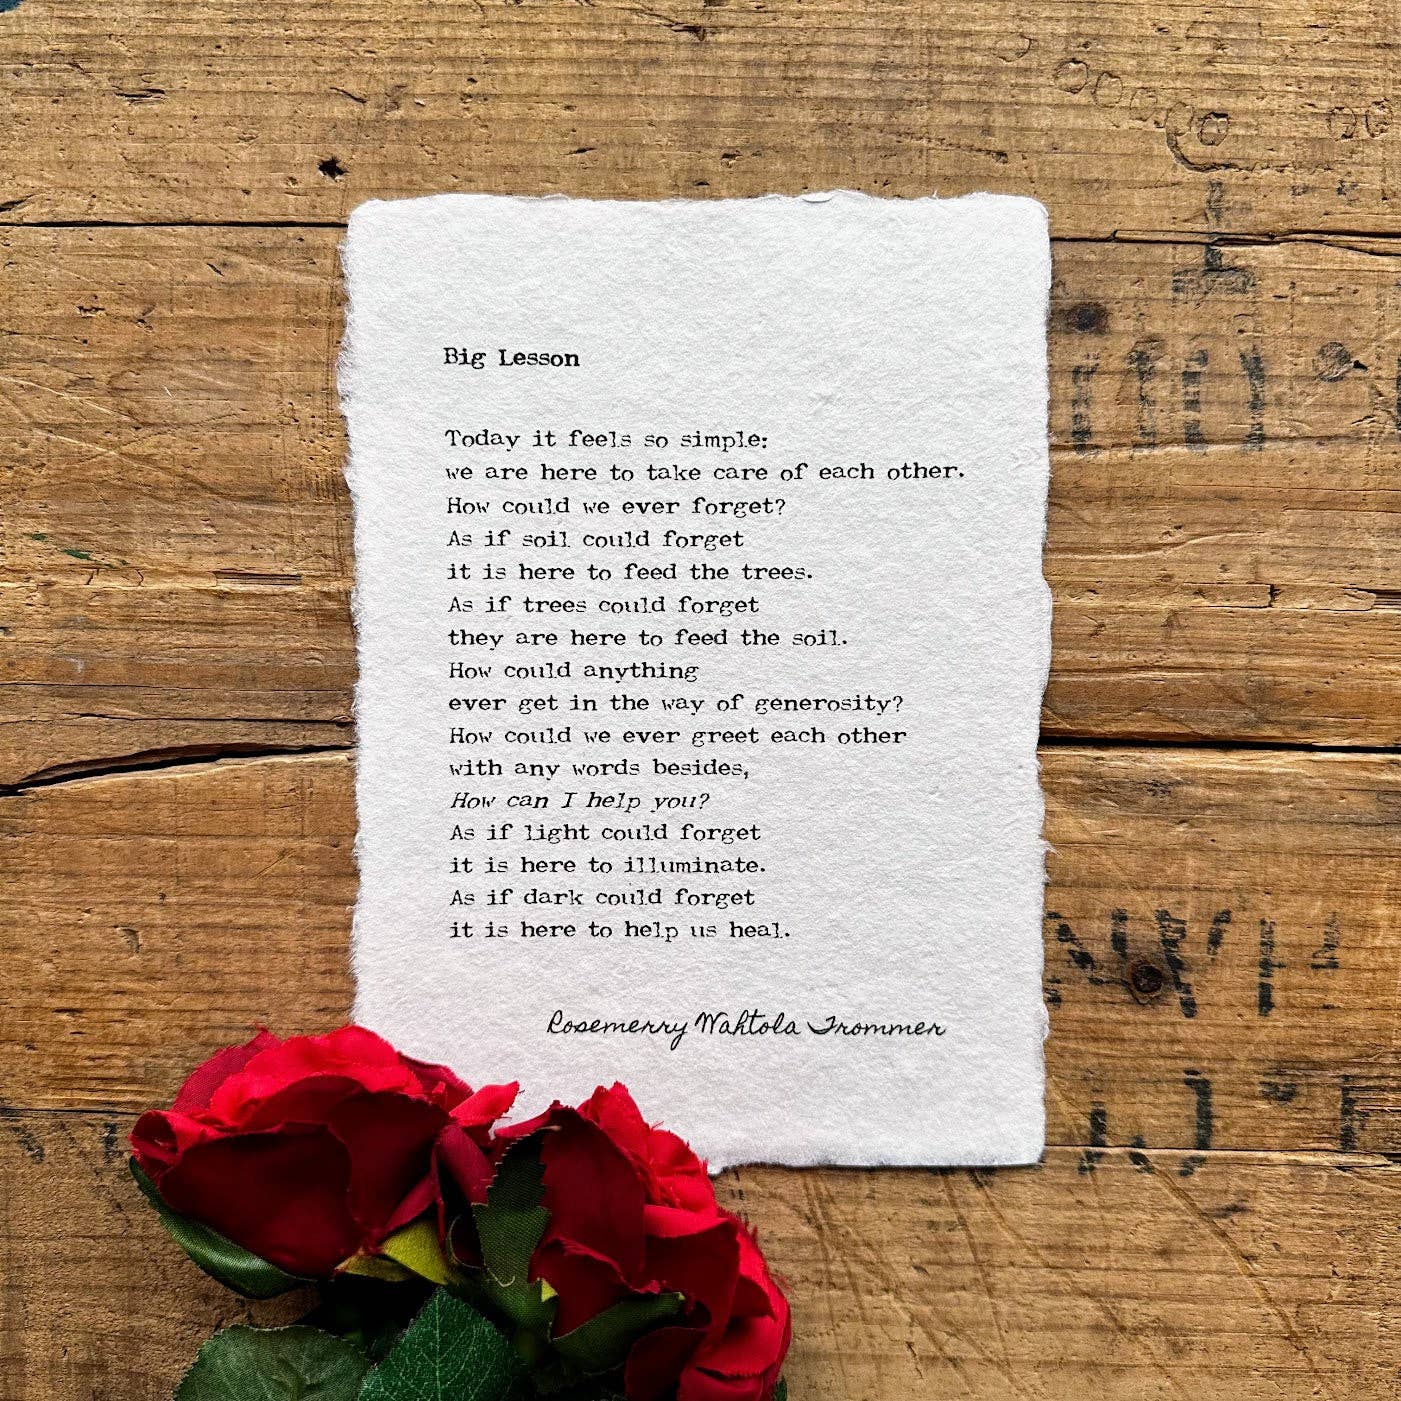 Big Lesson
Today it feels so simple:
we are here to take care of each other.
How could we ever forget?
As if soil could forget
it is here to feed the trees.
As if trees could forget
they are here to feed the soil.
How could anything
ever get in the way of generosity?
How could we ever greet each other
with any words besides,
How can I help you?
As if light could forget
it is here to illuminate.
As if dark could forget
it is here to help us heal.
Rosemerry Wahtola Trommer